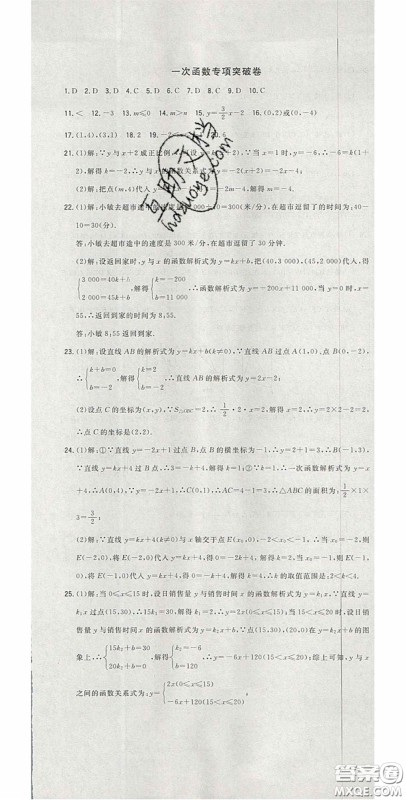 一次函数专项突破卷
1. D 2. D 3. D 4. D 5. D 6. C 7. D 8. C 9. D 10. C
11. < 12. -3 13. m≤0 14. m>n 15. y=3/2x-2 16. (0,2)或(0,-4)
17. (1,4),(3,1) 18. 2 19. -2
21. (1)解:∵y与x+2成正比例,
(2)把点(m,4)代入 -2m-4,解得m=-4.
22. (1)解:小敏去超市途中的速度是 =300(米/分),在超市逗留了的时间为:40-
10=30(分).
答:小敏去超市途中的速度是300米/分,在超市逗留了30分钟.
(2)解:设返回家时,y与x的函数解析式为y=kx+b,把(40,3 000),(45,2 000)代入,得
{3 000=40k+b, 2 000=45k+b,解得{k=-200 b=11 000∴函数解析式为y=-200x+11 000,当y=0时,x=
55,∴返回到家的时间为8:55.
答:小敏8:55返回到家.
23. (1)解:设直线AB的解析式为y=kx+b(k≠0),∵直线AB过点A(1,0)、点B(0,-2),
∴{k+b=0 b=-2,解得{k=2 b=-2,∴直线AB的解析式为y=2x-2;
(2)设点C的坐标为(x,y),∵S△BOC=2,∴1/2·2·x=2,解得x=2,∴y=2×2-2=2,
∴点C的坐标为(2,2).
24. (1)解:①∵直线y=-2x+1过点B,点B的横坐标为-1,∴y=2+1=3,∴B(-1,3),
∵直线y=kx+4过B点,∴3=-k+4,解得:k=1;②∵k=1,∴一次函数解析式为:y=x
+4,∴A(0,4),∵y=-2x+1,∴C(0,1),∴AC=4-1=3,∴△ABC的面积为:1/2×1×
3=3/2;
(2)解:∵直线y=kx+4(k≠0)与x轴交于点E(x₀,0),-2<x₀<-1,∴当x₀=-2,则
E(-2,0),将E(-2,0)代入y=kx+4得,0=-2k+4,解得k=2,当x₀=-1,则
E(-1,0),将E(-1,0)代入y=kx+4得,0=-k+4,解得:k=4,∴k的取值范围是:2<k<4.
25. (1)解:当0≤x≤15时,设日销售量y与销售时间x的函数解析式为y=k₁x,∵直线y=
k₁x过点(15,30),∴15k₁=30,解得k₁=2,∴y=2x(0≤x≤15);当15<x≤20时,设日销
售量y与销售时间x的函数解析式为y=k₂x+b,∵点(15,30),(20,0)在y=k₂x+b的图
象上,∴{15k₂+b=30 20k₂+b=0,解得:{k₂=-6 b=120,∴y=-6x+120(15<x≤20);综上可知,y与x
之间的函数关系式为:y={2x(0≤x≤15) -6x+120(15<x≤20);